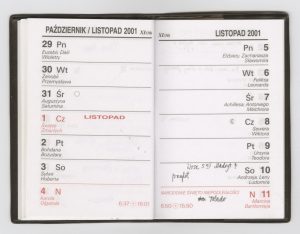 PAŹDZIERNIK / LISTOPAD 2001
29 Pn
Wioletty
30 Wt
Zenobii
Przemysława
31 Śr
Augustyna
Saturnina
LISTOPAD
1 Cz
Wszystkich
Świętych
2 Pt
Bohdana
Bożydara
3 So
Sylwii
Huberta
4 N
Karola
Olgierda
LISTOPAD 2001
Pn 5
Elżbiety, Zachariasza
Sławomira
Wt 6
Feliksa
Leonarda
Śr 7
Achillesa, Antoniego
Melchiora
Cz 8
Seweryna
Wiktora
Pt 9
Ursyna
Teodora
So 10
Andrzeja, Leny
Ludomira
NARODOWE ŚWIĘTO NIEPODLEGŁOŚCI
N 11
Marcina
Bartłomieja
Toledo